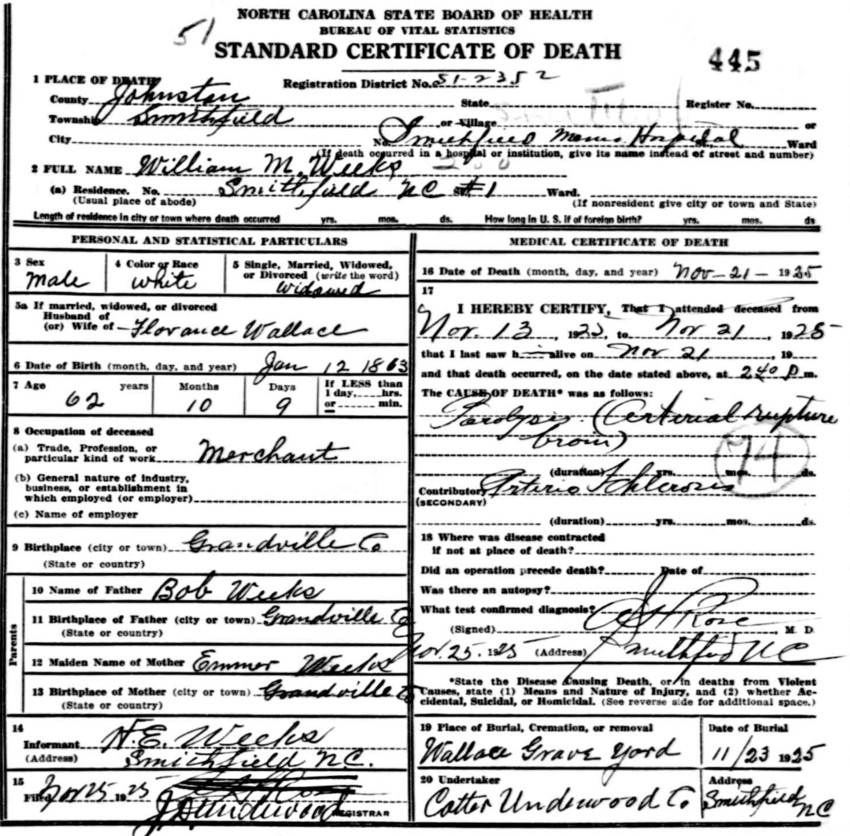 NORTH CAROLINA STATE BOARD OF HEALTH
BUREAU OF VITAL STATISTICS
51
STANDARD CERTIFICATE OF DEATH
445
1 PLACE OF DEATH
Registration District No. 51-2352
County Johnston State Register No.
Township Smithfield or Village or
City No. Smithfield Memo Hospital Ward
(If death occurred in a hospital or institution, give its name instead of street and number)
2 FULL NAME William M. Weeks
(a) Residence. No. Smithfield NC #1 Ward.
(Usual place of abode) (If nonresident give city or town and State)
Length of residence in city or town where death occurred yrs. mos. ds. How long in U. S. if of foreign birth? yrs. mos. ds
PERSONAL AND STATISTICAL PARTICULARS
3 Sex
male
4 Color or Race
white
5 Single, Married, Widowed,
or Divorced (write the word)
widowed
5a If married, widowed, or divorced
Husband of
(or) Wife of Florance Wallace
6 Date of Birth (month, day, and year) Jan 12 1863
7 Age 62 years Months 10 Days 9
If LESS than
1 day, hrs.
or min.
8 Occupation of deceased
(a) Trade, Profession, or
particular kind of work Merchant
(b) General nature of industry,
business, or establishment in
which employed (or employer)
(c) Name of employer
9 Birthplace (city or town) Grandville Co
(State or country)
Parents
10 Name of Father Bob Weeks
11 Birthplace of Father (city or town) Grandville Co
(State or country)
12 Maiden Name of Mother Emmer Weeks
13 Birthplace of Mother (city or town) Grandville Co
(State or country)
14
Informant H.E. Weeks
(Address) Smithfield N.C.
15
Filed Nov 25 1925
J.D. Underwood
REGISTRAR
MEDICAL CERTIFICATE OF DEATH
16 Date of Death (month, day, and year) Nov-21-1925
17
I HEREBY CERTIFY, That I attended deceased from
Nov. 13, 1925, to Nov 21, 1925
that I last saw h alive on Nov 21, 19
and that death occurred, on the date stated above, at 240 P m.
The CAUSE OF DEATH* was as follows:
Paralysis (Arterial rupture
brain)
74
(duration) yrs. mos. ds.
Contributory Arterio Schlerosis
(SECONDARY)
(duration) yrs. mos. ds.
18 Where was disease contracted
if not at place of death?
Did an operation precede death? Date of
Was there an autopsy?
What test confirmed diagnosis?
(Signed) Rose, M. D.
Nov. 25, 1925 (Address) Smithfield NC
*State the Disease Causing Death, or in deaths from Violent
Causes, state (1) Means and Nature of Injury, and (2) whether Ac-
cidental, Suicidal, or Homicidal. (See reverse side for additional space.)
19 Place of Burial, Cremation, or removal
Wallace Grave Yard
Date of Burial
11/23 1925
20 Undertaker
Cotter Underwood Co
Address
Smithfield
NC